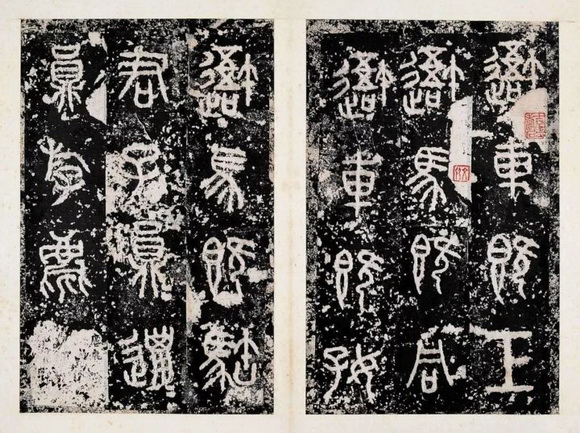 吾車既工
吾馬既同
吾車既好
吾馬既駓
君子員邋
員斿麀